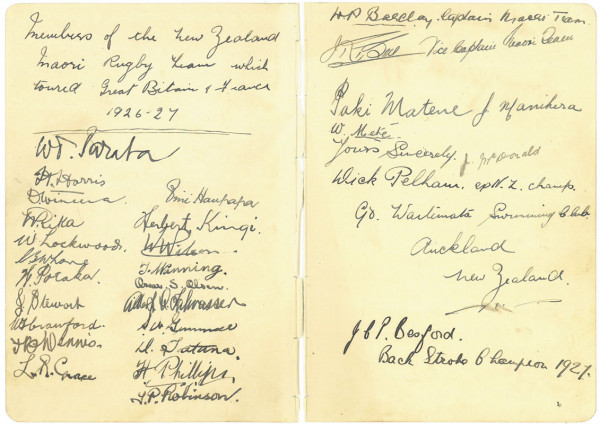 Members of the New Zealand
Maori Rugby Team which
toured Great Britain & France
1926-27
W. T. Parata
H. Harris
W. Rika
W Lockwood.
W. Potaka.
J. Stewart
W Crawford.
L. R. Grace
Pini Haupapa
Herbert Kingi.
W Wilson.
T. Manning.
S. Olsen.
S. W. Gemmell
D. Tatana.
H Phillips,
T. P. Robinson.
W P Barclay. Captain Maori Team.
Vice Captain Maori Team
Paki Matene J Manihera
W. Mete.
Yours Sincerely. J. McDonald
Dick Pelham. ex N. Z. champ.
C/o. Waitemata Swimming Club
Auckland
New Zealand.
J C P. Besford.
Back Stroke Champion 1927.